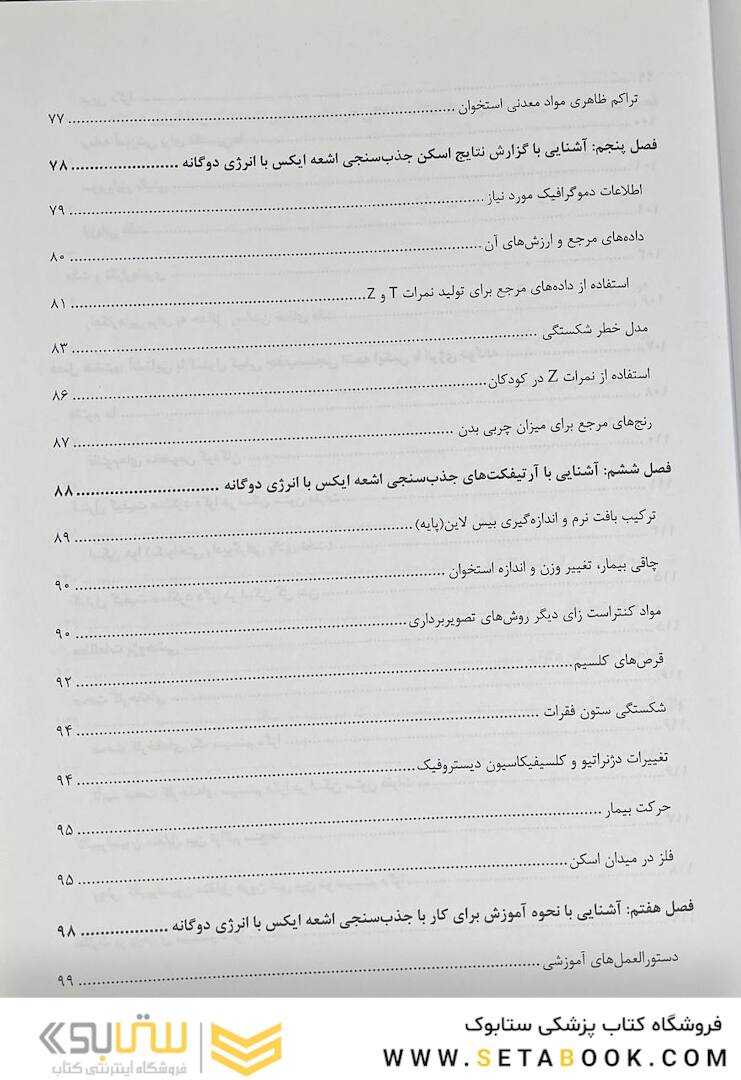 تراکم ظاهری مواد معدنی استخوان ........................ ۷۷
فصل پنجم: آشنایی با گزارش نتایج اسکن جذب‌سنجی اشعه ایکس با انرژی دوگانه ........................ ۷۸
اطلاعات دموگرافیک مورد نیاز ........................ ۷۹
داده‌های مرجع و ارزش‌های آن ........................ ۸۰
استفاده از داده‌های مرجع برای تولید نمرات T و Z ........................ ۸۱
مدل خطر شکستگی ........................ ۸۳
استفاده از نمرات Z در کودکان ........................ ۸۶
رنج‌های مرجع برای میزان چربی بدن ........................ ۸۷
فصل ششم: آشنایی با آرتیفکت‌های جذب‌سنجی اشعه ایکس با انرژی دوگانه ........................ ۸۸
ترکیب بافت نرم و اندازه‌گیری بیس لاین(پایه) ........................ ۸۹
چاقی بیمار، تغییر وزن و اندازه استخوان ........................ ۹۰
مواد کنتراست زای دیگر روش‌های تصویربرداری ........................ ۹۰
قرص‌های کلسیم ........................ ۹۲
شکستگی ستون فقرات ........................ ۹۴
تغییرات دژنراتیو و کلسیفیکاسیون دیستروفیک ........................ ۹۴
حرکت بیمار ........................ ۹۵
فلز در میدان اسکن ........................ ۹۵
فصل هفتم: آشنایی با نحوه آموزش برای کار با جذب‌سنجی اشعه ایکس با انرژی دوگانه ........................ ۹۸
دستورالعمل‌های آموزشی ........................ ۹۹
فروشگاه کتاب پزشکی ستابوک
WWW.SETABOOK.COM
ستابوک
فروشگاه اینترنتی کتاب